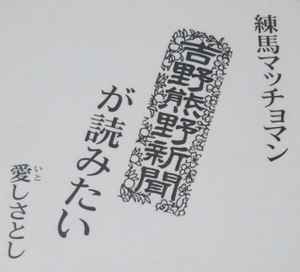 練馬マッチョマン
吉野熊野新聞
が読みたい
愛しさとし
いと